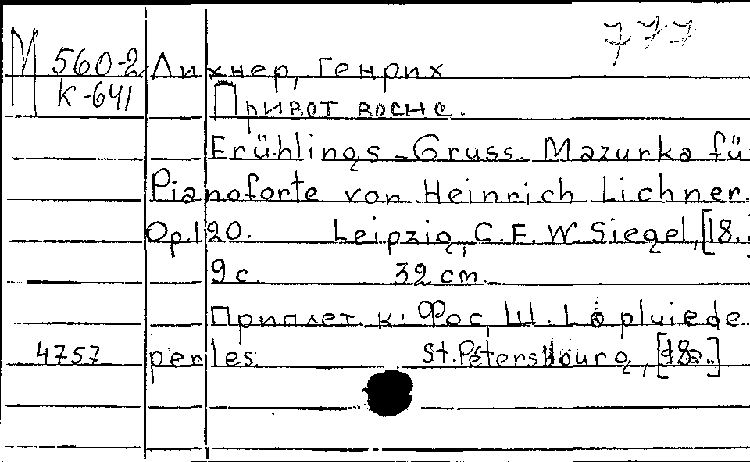 777
М 560-2 Лихнер, Генрих
К-641 Привет весне.
Frühlings-Gruss. Mazurka fü
Pianoforte von Heinrich Lichner.
Op.120. Leipzig, C.F.W. Siegel, [18.
9 с. 32 cm.
Приплет. к: Фос, Ш. La pluie de
4757 perles. St.Pétersbourg, [18..]